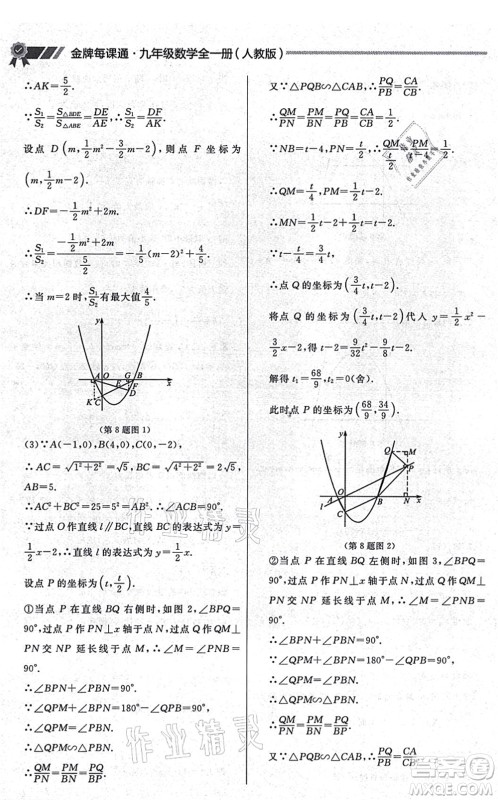 金牌每课通·九年级数学全一册(人教版)
∴AK=5/2.
∵S₁/S₂=S△BDE/S△ABE=DE/AE,∴S₁/S₂=DF/AK.
设点 D(m,1/2m²-3/2m-2),则点 F 坐标为
(m,1/2m-2).
∴DF=-1/2m²+2m.
∴S₁/S₂=(-1/2m²+2m)/(5/2)=-1/5(m-2)²+4/5.
∴当 m=2 时,S₁/S₂有最大值4/5.
y
A O G B
E F D C x
(第 8 题图 1)
(3)∵A(-1,0),B(4,0),C(0,-2),
∴AC=√(1²+2²)=√5,BC=√(4²+2²)=2√5,
AB=5.
∴AC²+BC²=25=AB².
∵过点 O 作直线 l∥BC,直线 BC 的表达式为 y=
1/2x-2,∴直线 l 的表达式为 y=1/2x.
设点 P 的坐标为(t,t/2).
①当点 P 在直线 BQ 右侧时,如图 2,∠BPQ=
90°,过点 P 作 PN⊥x 轴于点 N,过点 Q 作 QM⊥
PN 交 NP 延长线于点 M,∴∠M=∠PNB=
90°.
∴∠BPN+∠PBN=90°.
∵∠QPM+∠BPN=180°-∠QPB=90°,
∴∠QPM=∠PBN.
∴△QPM∽△PBN.
∴QM/PN=PM/BN=PQ/BP.
又∵△PQB∽△CAB,∴PQ/PB=CA/CB.
∴QM/PN=PM/BN=PQ/PB=CA/CB=1/2.
∵NB=t-4,∴QM/(t/2)=PM/(t-4)=1/2.
∴QM=t/4,PM=1/2t-2.
∴MN=1/2t-2+1/2t=t-2.
∵t-t/4=3/4t,
∴点 Q 的坐标为(3/4t,t-2).
将点 Q 的坐标为(3/4t,t-2)代人 y=1/2x²-
3/2x-2,得 t-2=9/32t²-9/8t-2.
解得 t₁=68/9,t₂=0(舍).
此时点 P 的坐标为(68/9,34/9).
y
Q M
P
l A O B N x
C
(第 8 题图 2)
②当点 P 在直线 BQ 左侧时,如图 3,∠BPQ=
90°,过点 P 作 PN⊥x 轴于点 N,过点 Q 作 QM⊥
PN 交 NP 延长线于点 M,∴∠M=∠PNB=
90°.
∴∠BPN+∠PBN=90°.
∵∠QPM+∠BPN=180°-∠QPB=90°,
∴∠QPM=∠PBN.
∴△QPM∽△PBN.
∴QM/PN=PM/BN=PQ/PB.
又∵△PQB∽△CAB,∴PQ/PB=CA/CB.
作业精灵
作业精灵
答案圈
MXQE.COM